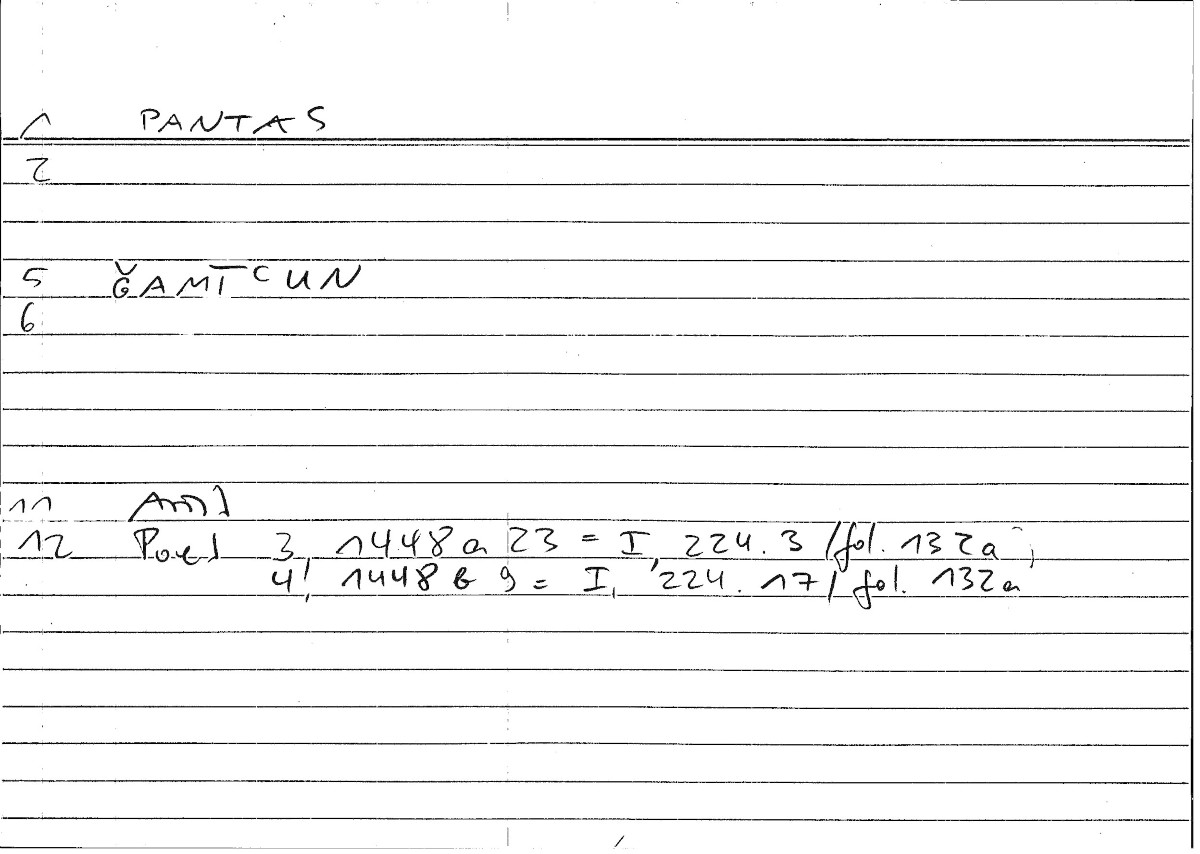 1 PANTAS
2
5 ǦAMTᶜUN
6
11
12 Poet 3, 1448 a 23 = I, 224. 3 / fol. 132a;
4, 1448 b 9 = I, 224. 17 / fol. 132a